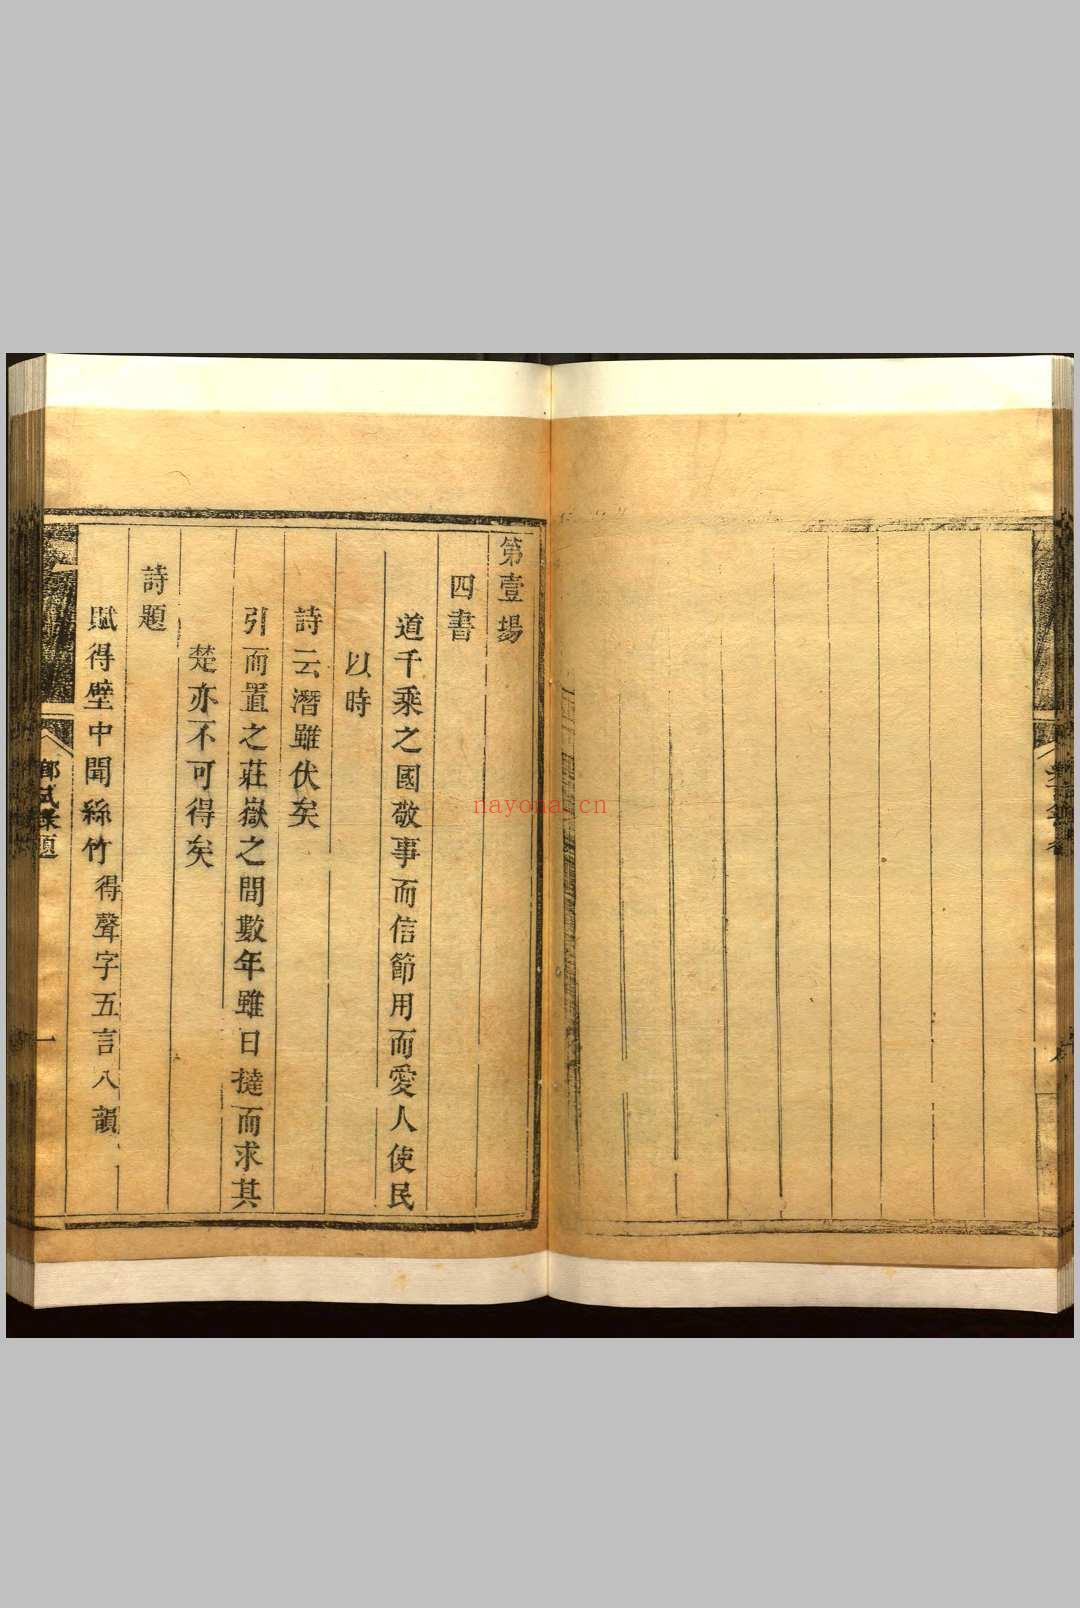 第壹場
四書
道千乘之國敬事而信節用而愛人使民
以時
詩云潛雖伏矣
引而置之莊嶽之間數年雖日撻而求其
楚亦不可得矣
詩題
賦得壁中聞絲竹得聲字五言八韻
鄉試錄題
一
nayona.cn